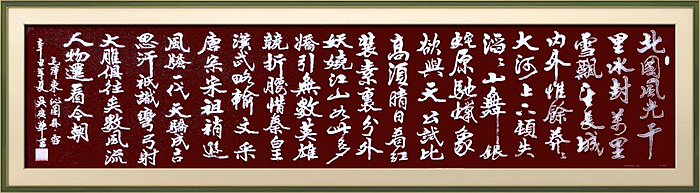 北國風光千
里冰封万里
雪飄望長城
内外惟餘莽々
大河上下頓失
滔々山舞銀
蛇原馳蠟象
欲與天公試比
高須晴日看红
装素裹分外
妖娆江山如此多
嬌引無数英雄
競折腰惜秦皇
漢武略輸文采
唐宗宋祖稍遜
風騷一代天驕成吉
思汗祗識彎弓射
大雕俱往矣数風流
人物還看今朝
毛泽東沁園春雪